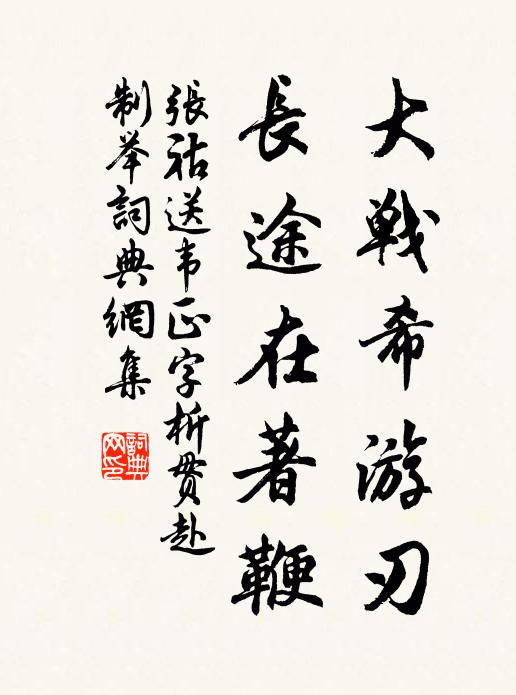 大戰希游刃
長途在著鞭
張祜送韦正字析貫赴
制举詞典網集
詞典网印